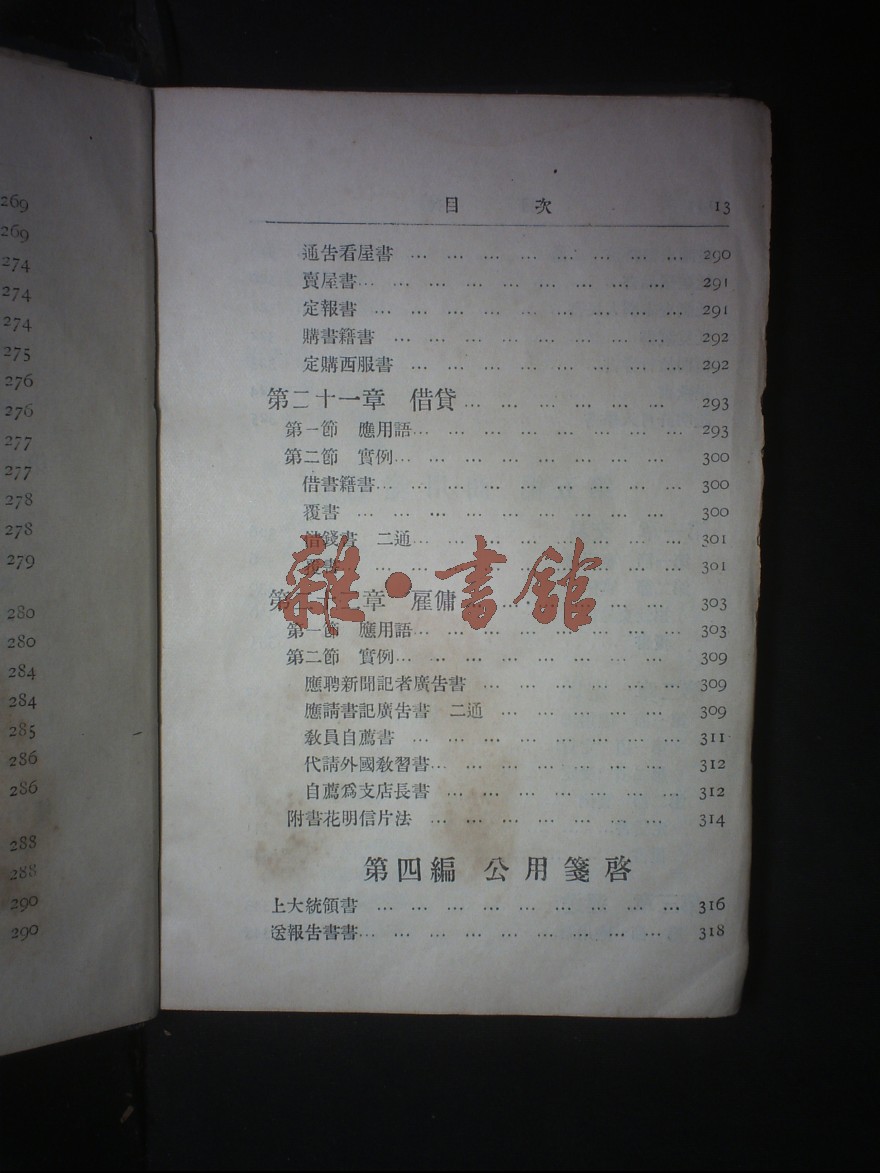 269
269
274
274
274
275
276
276
277
277
278
278
279
280
280
284
284
285
286
286
288
288
290
290
目 次 13
通告看屋書 … … … … … … … … 290
賣屋書… … … … … … … … … 291
定報書 … … … … … … … … … 291
購書籍書 … … … … … … … … 292
定購西服書 … … … … … … … … 292
第二十一章 借貸… … … … … … 293
第一節 應用語… … … … … … … … 293
第二節 實例… … … … … … … … 300
借書籍書… … … … … … … … … 300
覆書 … … … … … … … … … 300
借錢書 二通… … … … … … … … 301
書… … … … … … … … … 301
第二十二章 雇傭… … … … … … 303
第一節 應用語… … … … … … … … 303
第二節 實例… … … … … … … … 309
應聘新聞記者廣告書 … … … … … … 309
應請書記廣告書 二通 … … … … … 309
敎員自薦書 … … … … … … … … 311
代請外國敎習書… … … … … … … 312
自薦爲支店長書 … … … … … … … 312
附書花明信片法 … … … … … … … 314
第四編 公用箋啓
上大統領書 … … … … … … … … … 316
送報告書書… … … … … … … … … 318
雜·書館